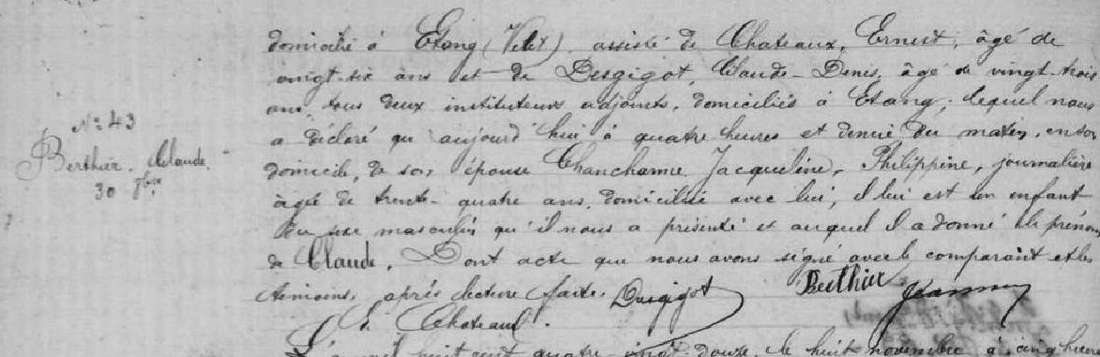 domicilié à Etang (Velet) assisté de Chateaux, Ernest, âgé de
vingt-six ans et de Desgigot, Claude-Denis, âgé de vingt-trois
ans, tous deux instituteurs adjoints, domiciliés à Etang; lequel nous
N° 43
a déclaré qu'aujourd'hui à quatre heures et demie du matin, en son
Berthier, Claude
domicile, de son épouse Chancharme Jacqueline, Philippine, journalière
30 9bre
âgée de trente-quatre ans, domiciliée avec lui, il lui est un enfant
du sexe masculin qu'il nous a présenté et auquel il a donné le prénom
de Claude. Dont acte que nous avons signé avec le comparant et les
témoins, après lecture faite. Desgigot Berthier
E. Chateaux.
L'an mil huit cent quatre-vingt-douze, le huit novembre à cinq heures